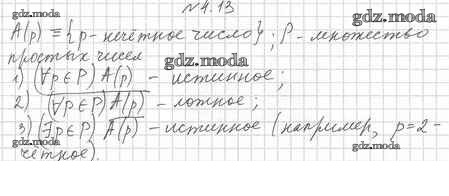 №4.13
gdz.moda
A(p) ≡ {p - нечётное число}; P - множество
простых чисел
gdz.moda
1) (∀p∈P) A(p) - истинное;
2) (∀p∈P) A(p) - ложное;
3) (∃p∈P) A(p) - истинное (например, p=2 -
чётное).
gdz.moda
gdz.moda